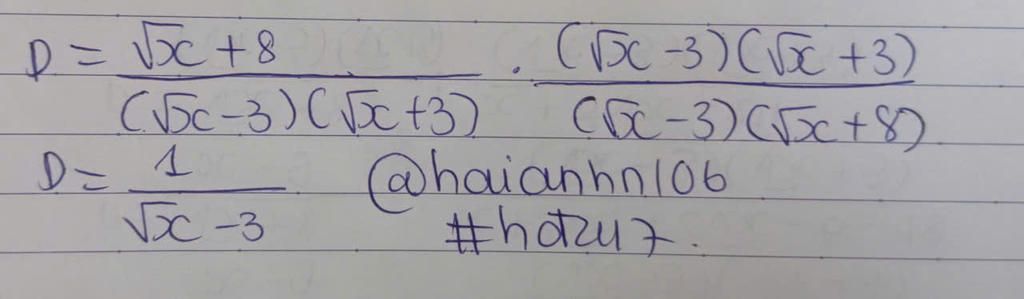 D = (√x + 8) / ((√x - 3)(√x + 3)) . ((√x - 3)(√x + 3)) / ((√x - 3)(√x + 8))
D = 1 / (√x - 3) @haianhn106
#hdtzu7.